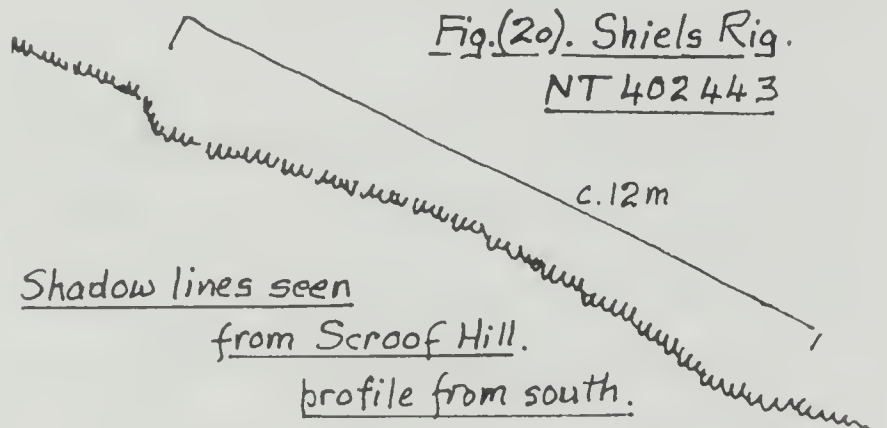 Fig.(20). Shiels Rig.
NT 402443
c.12m
Shadow lines seen
from Scroof Hill.
profile from south.